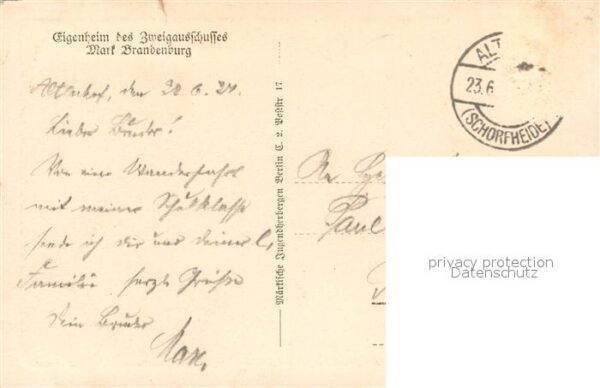 Eigenheim des Zweigausschusses
Mark Brandenburg
Altenhof, den 22.6.
Lieber Bruder!
Von eine Wanderfahrt
mit meiner Schulklasse
sende ich dir und deiner l.
Familie herzl. Grüße
Dein Bruder
Max.
Märkische Jugendherbergen Berlin C. 2. Poststr. 17
ALT
23.6
(SCHORFHEIDE)
Paul
privacy protection
Datenschutz